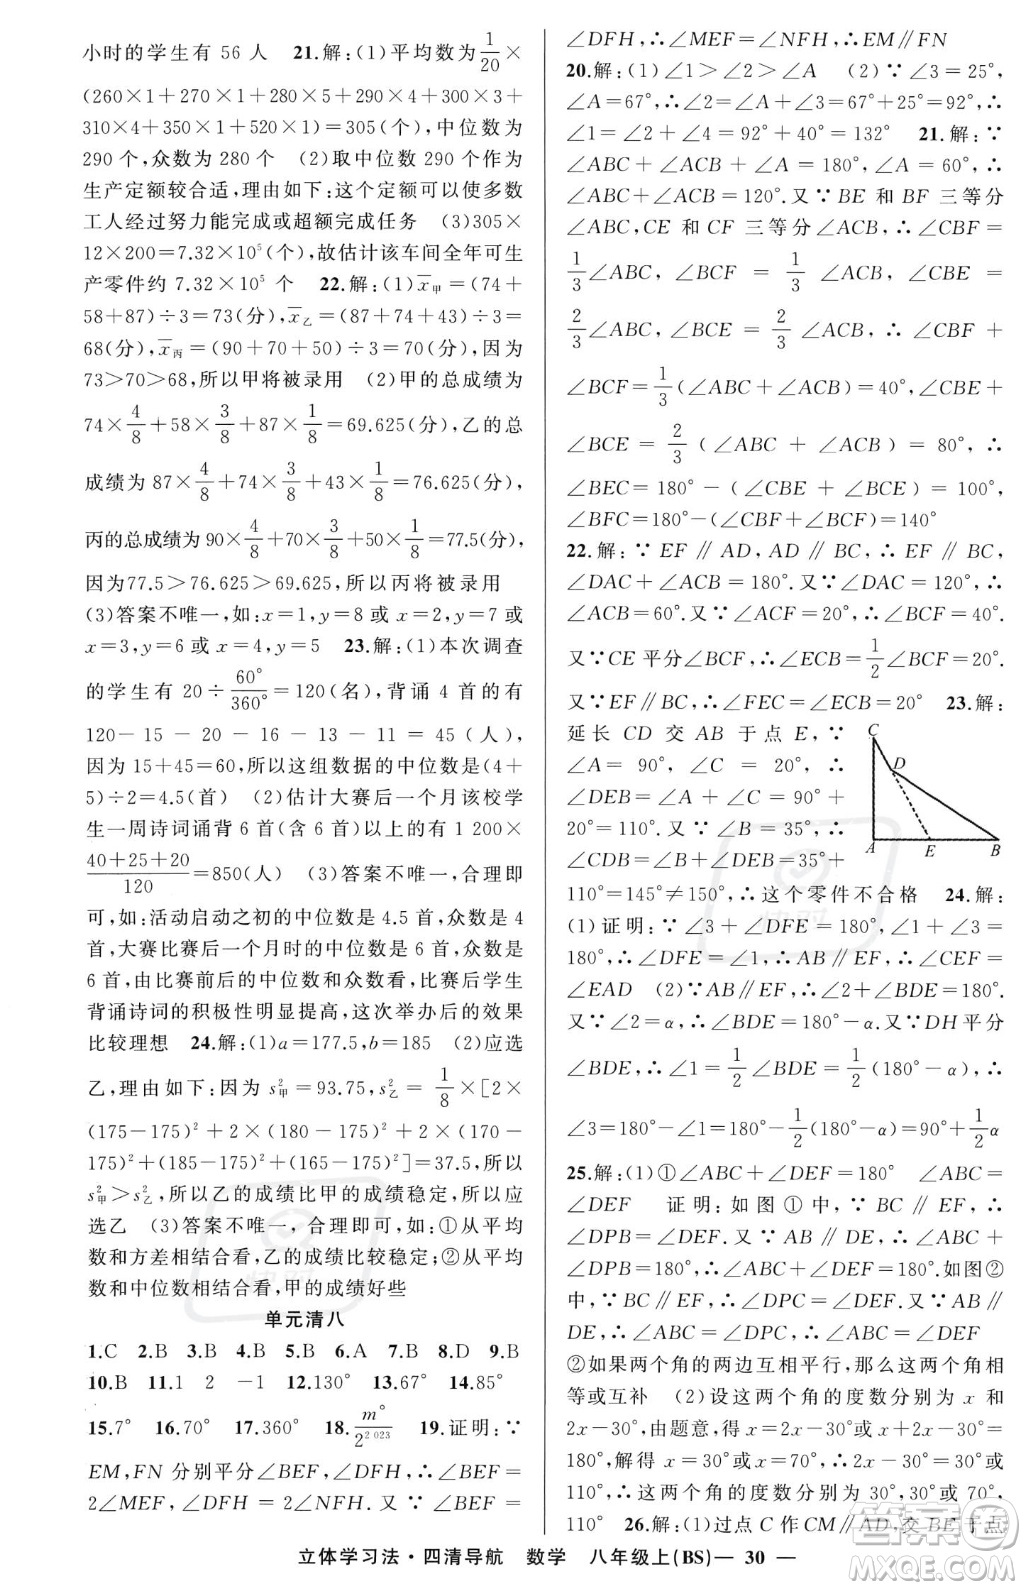 小时的学生有 56 人　21.解:(1)平均数为1/20×
(260×1+270×1+280×5+290×4+300×3+
310×4+350×1+520×1)=305(个),中位数为
290 个,众数为 280 个　(2)取中位数 290 个作为
生产定额较合适,理由如下:这个定额可以使多数
工人经过努力能完成或超额完成任务　(3)305×
12×200=7.32×10⁵(个),故估计该车间全年可生
产零件约 7.32×10⁵ 个　22.解:(1)x̄甲=(74+
58+87)÷3=73(分),x̄乙=(87+74+43)÷3=
68(分),x̄丙=(90+70+50)÷3=70(分).因为
73>70>68,所以甲将被录用　(2)甲的总成绩为
74×4/8+58×3/8+87×1/8=69.625(分),乙的总
成绩为 87×4/8+74×3/8+43×1/8=76.625(分),
丙的总成绩为 90×4/8+70×3/8+50×1/8=77.5(分),
因为77.5>76.625>69.625,所以丙将被录用
(3)答案不唯一,如:x=1,y=8 或 x=2,y=7 或
x=3,y=6 或 x=4,y=5　23.解:(1)本次调查
的学生有 20÷60°/360°=120(名),背诵 4 首的有
120-15-20-16-13-11=45(人),
因为 15+45=60,所以这组数据的中位数是(4+
5)÷2=4.5(首)　(2)估计大赛后一个月该校学
生一周诗词诵背 6 首(含 6 首)以上的有 1 200×
(40+25+20)/120=850(人)　(3)答案不唯一,合理即
可,如:活动启动之初的中位数是 4.5 首,众数是 4
首,大赛比赛后一个月时的中位数是 6 首,众数是
6 首,由比赛前后的中位数和众数看,比赛后学生
背诵诗词的积极性明显提高,这次举办后的效果
比较理想　24.解:(1)a=177.5,b=185　(2)应选
乙,理由如下:因为 s²甲=93.75,s²乙=1/8×[2×
(175-175)²+2×(180-175)²+2×(170-
175)²+(185-175)²+(165-175)²]=37.5,所以
s²甲>s²乙,所以乙的成绩比甲的成绩稳定,所以应
选乙　(3)答案不唯一,合理即可,如:①从平均
数和方差相结合看,乙的成绩比较稳定;②从平均
数和中位数相结合看,甲的成绩好些
单元清八
1.C　2.B　3.B　4.B　5.B　6.A　7.B　8.D　9.B
10.B　11.1　2　-1　12.130°　13.67°　14.75°
15.7°　16.70°　17.360°　18.m°/2²⁰²³　19.证明:∵
EM,FN 分别平分∠BEF,∠DFH,∴∠BEF=
2∠MEF,∠DFH=2∠NFH.又∵∠BEF=
∠DFH,∴∠MEF=∠NFH,∴EM∥FN
20.解:(1)∠1>∠2>∠A　(2)∵∠3=25°,
∠A=67°,∴∠2=∠A+∠3=67°+25°=92°,∴
∠1=∠2+∠4=92°+40°=132°　21.解:∵
∠ABC+∠ACB+∠A=180°,∠A=60°,∴
∠ABC+∠ACB=120°.又∵BE 和 BF 三等分
∠ABC,CE 和 CF 三等分∠ACB,∴∠CBF=
1/3∠ABC,∠BCF=1/3∠ACB,∠CBE=
2/3∠ABC,∠BCE=2/3∠ACB,∴∠CBF+
∠BCF=1/3(∠ABC+∠ACB)=40°,∠CBE+
∠BCE=2/3(∠ABC+∠ACB)=80°,∴
∠BEC=180°-(∠CBE+∠BCE)=100°,
∠BFC=180°-(∠CBF+∠BCF)=140°
22.解:∵EF∥AD,AD∥BC,∴EF∥BC,
∠DAC+∠ACB=180°.又∵∠DAC=120°,∴
∠ACB=60°.又∵∠ACF=20°,∴∠BCF=40°.
又∵CE 平分∠BCF,∴∠ECB=1/2∠BCF=20°.
又∵EF∥BC,∴∠FEC=∠ECB=20°　23.解:
延长 CD 交 AB 于点 E,∵
∠A=90°,∠C=20°,∴
∠DEB=∠A+∠C=90°+
20°=110°.又∵∠B=35°,∴
∠CDB=∠B+∠DEB=35°+
110°=145°≠150°,∴这个零件不合格　24.解:
C
D
A E B
(1)证明:∵∠3+∠DFE=180°,∠1+∠3=
180°,∴∠DFE=∠1,∴AB∥EF,∴∠CEF=
∠EAD　(2)∵AB∥EF,∴∠2+∠BDE=180°.
又∵∠2=α,∴∠BDE=180°-α.又∵DH平分
∠BDE,∴∠1=1/2∠BDE=1/2(180°-α),∴
∠3=180°-∠1=180°-1/2(180°-α)=90°+1/2α
25.解:(1)①∠ABC+∠DEF=180°　∠ABC=
∠DEF　证明:如图①中,∵BC∥EF,∴
∠DPB=∠DEF.又∵AB∥DE,∴∠ABC+
∠DPB=180°,∴∠ABC+∠DEF=180°.如图②
中,∵BC∥EF,∴∠DPC=∠DEF.又∵AB∥
DE,∴∠ABC=∠DPC,∴∠ABC=∠DEF
②如果两个角的两边互相平行,那么这两个角相
等或互补　(2)设这两个角的度数分别为 x 和
2x-30°,由题意,得 x=2x-30°或 x+2x-30°=
180°,解得 x=30°或 x=70°,∴2x-30°=30°或
110°,∴这两个角的度数分别为 30°,30°或 70°,
110°　26.(1)过点 C 作 CM∥AD,交 BE 于点
立体学习法·四清导航　数学　八年级上(BS)— 30 —